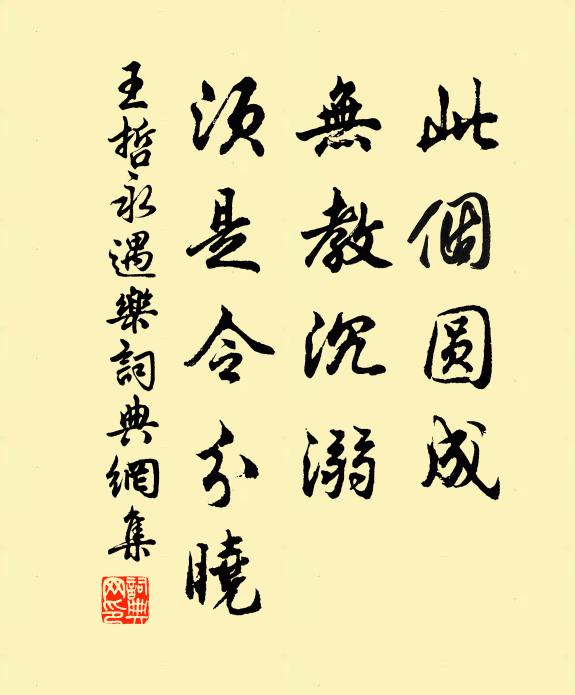 此個圆成
無教沉溺
須是令分曉
王哲永遇樂詞典網集
詞典網印